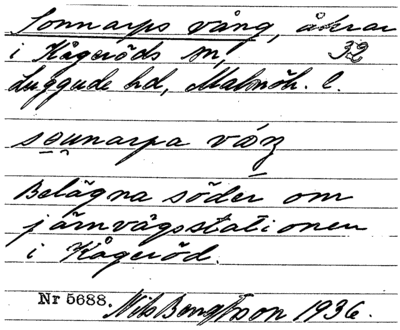 Sonnarps vång, åkrar
i Kågeröds sn, 32
Luggude hd, Malmöh. l.
sounarpa våŋ
Belägna söder om
järnvägsstationen
i Kågeröd.
Nr 5688. Nils Bengtsson 1936.